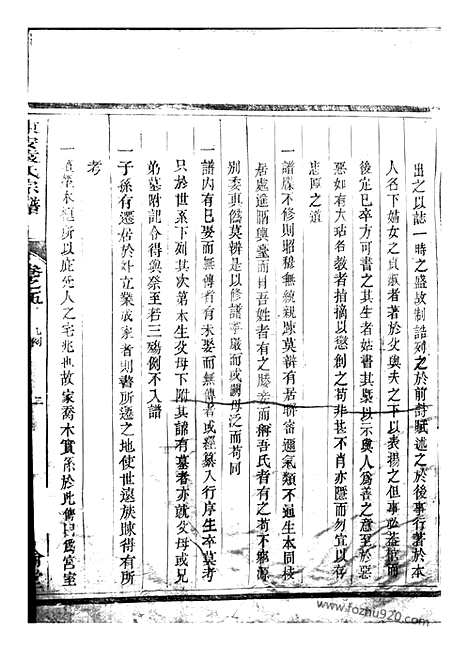 出之以誌一時之盛故制誥列之於前詩賦述之於後事行著於本
人名下婦女之貞淑者著於父與夫之下以表揚之但事必盖棺而
後定已卒方可書之其生者姑書其槩以示與人為善之意至於惡
惡如有大玷名教者指摘以懲創之苟非甚不肖亦隱而勿宣以存
忠厚之道
一譜牒不修則昭穆無統親踈莫辨有居聯睿邇氣類不通生本同枝
居處遙隔輿臺而目吾姓者有之厮養而稱吾氏者有之苟不
別委真僞莫辨是以修譜事嚴而或闕毋泛而苟同
一譜內有已娶而無傳者有未娶而無傳者或經纂入行序生卒莫考
只於世系下列其次第本生父母下附其諱有墓者亦就父母或兄
弟墓附記令得與祭至若三殤例不入譜
一子孫有遷居於外立業成家者則書所遷之地使世遠族踈得有所
考
一 所以庇死人之宅兆也故家喬木實係於此傳曰為宮室
宗譜
卷之五
www.fozhu920.com